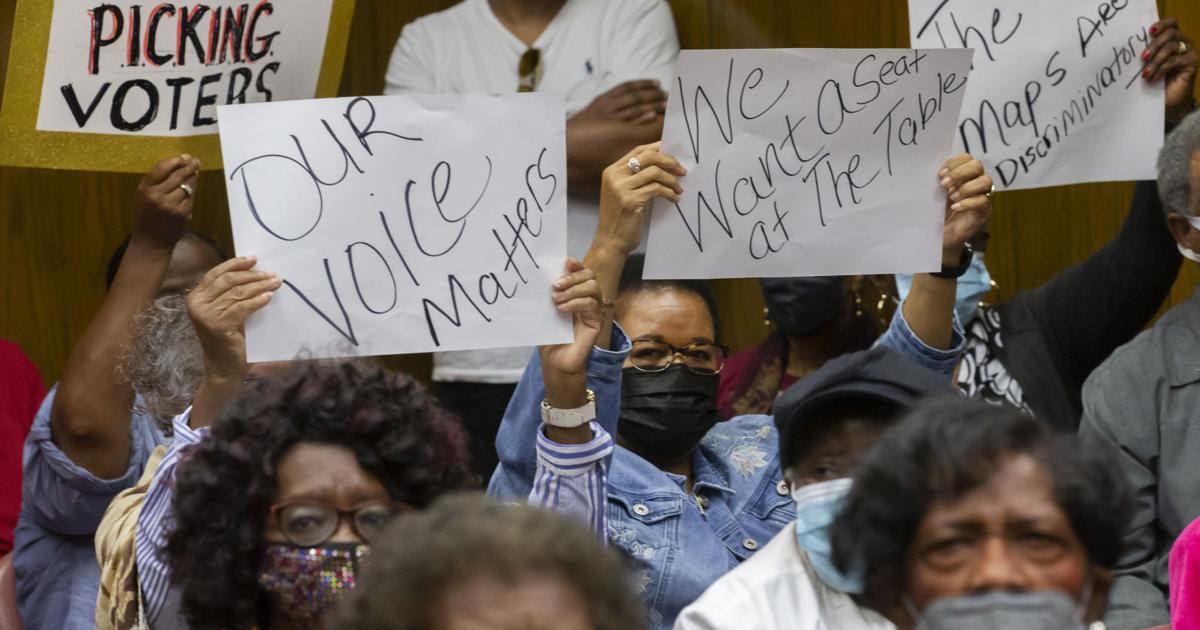 PICKING
VOTERS
OUR
VOICE
Matters
We
Want a Seat
at The Table
The
Maps Are
Discriminatory